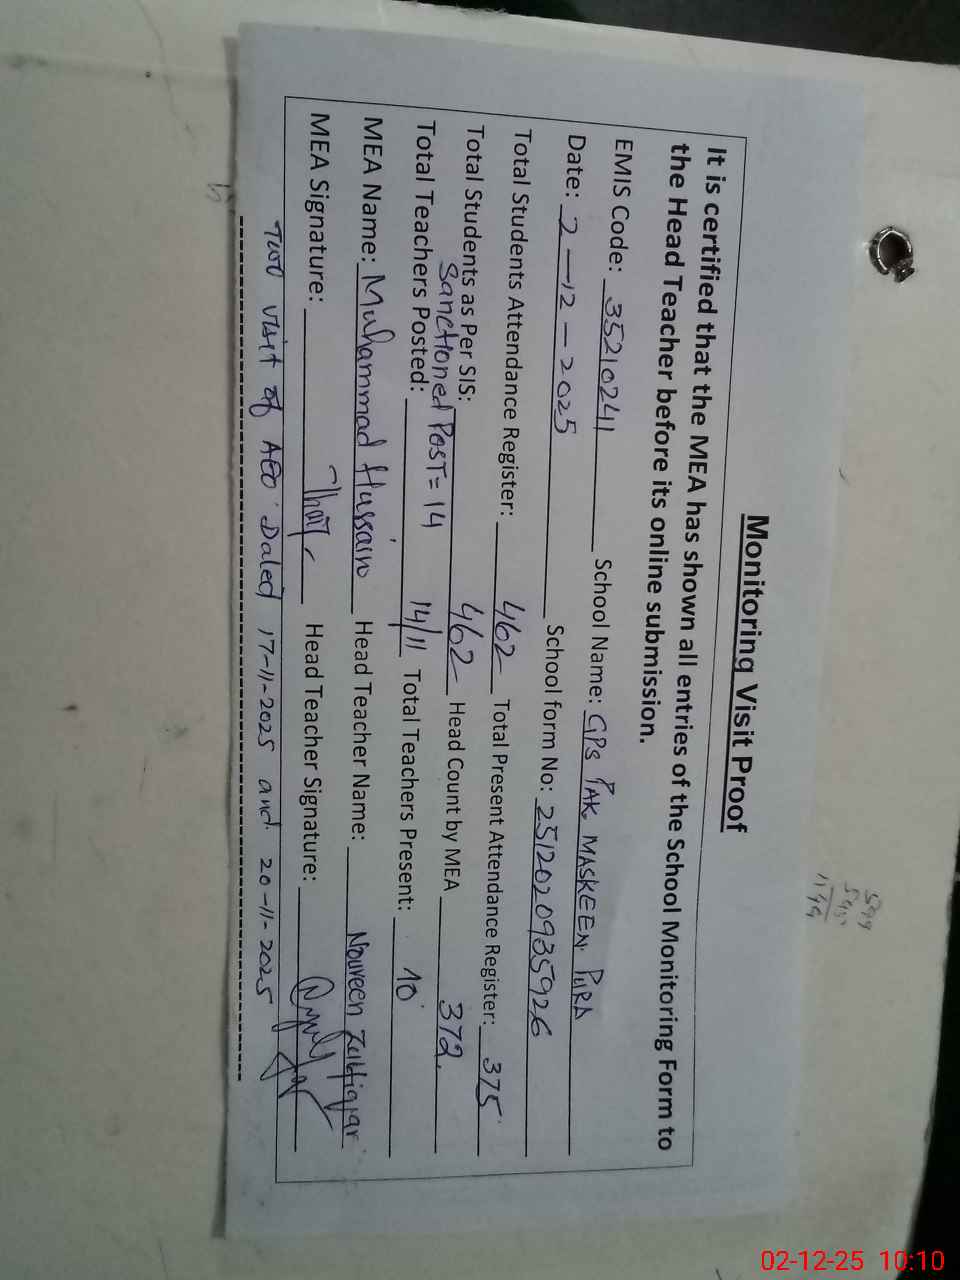 Monitoring Visit Proof
It is certified that the MEA has shown all entries of the School Monitoring Form to
the Head Teacher before its online submission.
EMIS Code: 35210241 School Name: GPS PAK MASKEEN PURA
Date: 2-12-2025 School form No: 2512020935926
Total Students Attendance Register: 462 Total Present Attendance Register: 375
Total Students as Per SIS: 462 Head Count by MEA 372
Sanctioned Post = 14
Total Teachers Posted: 14/11 Total Teachers Present: 10
MEA Name: Muhammad Hussain Head Teacher Name: Nourveen Zulfiqar
MEA Signature: Head Teacher Signature:
Two visit of AEO Dated 17-11-2025 and 20-11-2025
02-12-25 10:10